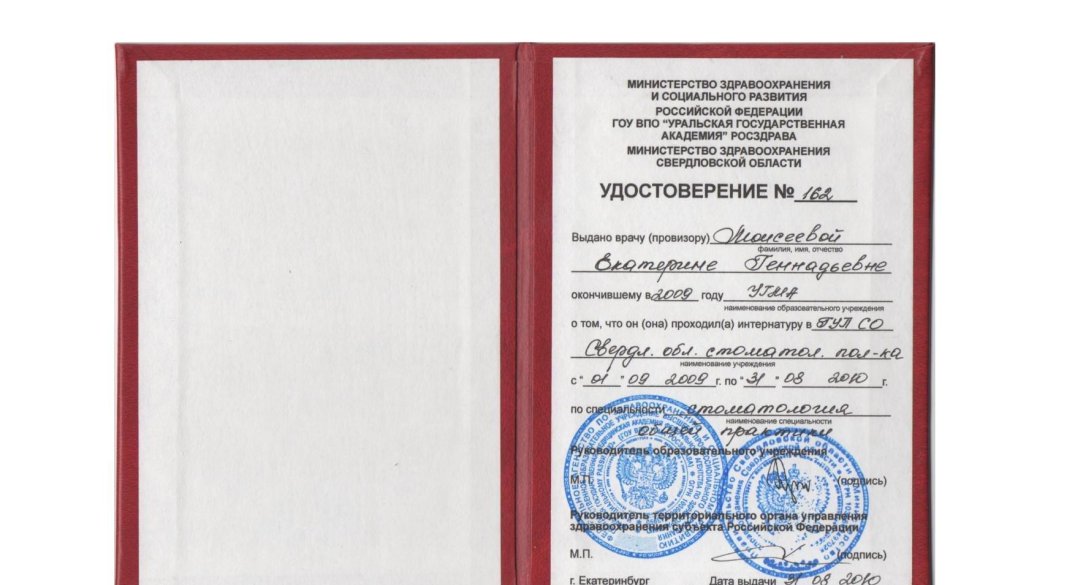 МИНИСТЕРСТВО ЗДРАВООХРАНЕНИЯ
И СОЦИАЛЬНОГО РАЗВИТИЯ
РОССИЙСКОЙ ФЕДЕРАЦИИ
ГОУ ВПО "УРАЛЬСКАЯ ГОСУДАРСТВЕННАЯ
АКАДЕМИЯ" РОСЗДРАВА
МИНИСТЕРСТВО ЗДРАВООХРАНЕНИЯ
СВЕРДЛОВСКОЙ ОБЛАСТИ
УДОСТОВЕРЕНИЕ № 162
Выдано врачу (провизору) Моисеевой
фамилия, имя, отчество
Екатерине Геннадьевне
окончившему в 2009 году УГМА
наименование образовательного учреждения
о том, что он (она) проходил(а) интернатуру в ГУП СО
Свердл. обл. стоматол. пол-ка
наименование учреждения
с "01" 09 2009 г. по "31" 08 2010 г.
по специальности стоматология
наименование специальности
общей практики
Руководитель образовательного учреждения
М.П. (подпись)
Руководитель территориального органа управления
здравоохранения субъекта Российской Федерации
М.П. (подпись)
г. Екатеринбург Дата выдачи 31 08 2010